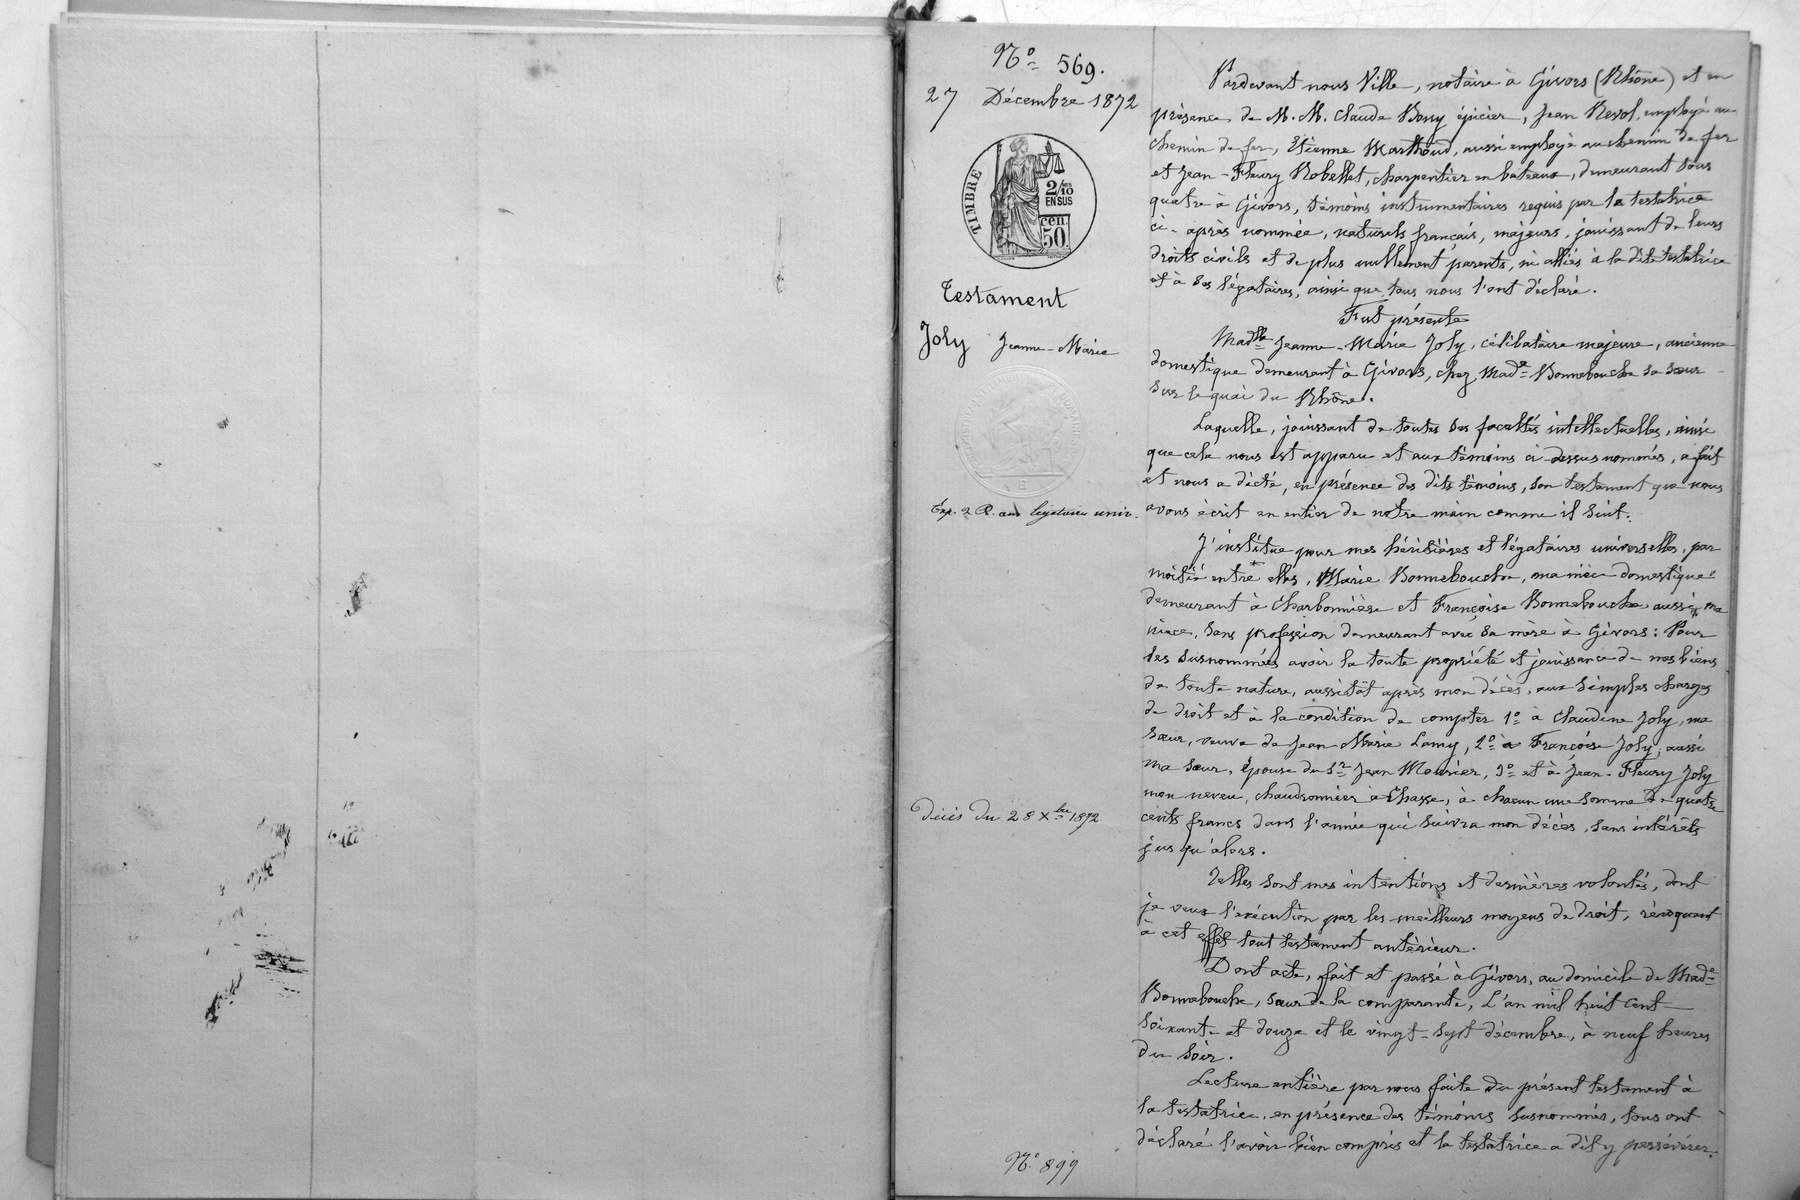 Nº 569.
27 Décembre 1872
TIMBRE
2/10
EN SUS
cen.
50.
Testament
Joly Jeanne-Marie
Exp. 2 R. aux légataires univ.
Décès du 28 Xbre 1872
Pardevant nous Ville, notaire à Givors (Rhône) et en
présence de M. M. Claude Bony épicier, Jean Revol, employé au
chemin de fer, Etienne Marthoud, aussi employé au chemin de fer
et Jean-Fleury Robellet, charpentier en bateaux, demeurant tous
quatre à Givors, témoins instrumentaires requis par la testatrice
ci-après nommée, naturels français, majeurs, jouissant de leurs
droits civils et de plus nullement parents, ni alliés à la dite testatrice
et à ses légataires, ainsi que tous nous l'ont déclaré.
Fut présente
Madlle Jeanne-Marie Joly, célibataire majeure, ancienne
domestique demeurant à Givors, chez Made Bonnebouche sa sœur
sur le quai du Rhône.
Laquelle, jouissant de toutes ses facultés intellectuelles, ainsi
que cela nous est apparu et aux témoins ci-dessus nommés, a fait
et nous a dicté, en présence des dits témoins, son testament que nous
avons écrit en entier de notre main comme il suit:
J'institue pour mes héritières et légataires universelles, par
moitié entre elles, Marie Bonnebouche, ma nièce domestique
demeurant à Charbonnière et Françoise Bonnebouche aussi ma
nièce, sans profession demeurant avec sa mère à Givors: Pour
les susnommées avoir la toute propriété et jouissance de mes biens
de toute nature, aussitôt après mon décès, aux simples charges
de droit et à la condition de compter 1º à Claudine Joly, ma
sœur, veuve de Jean Marie Lamy, 2º à Françoise Joly, aussi
ma sœur, épouse du Sr Jean Mounier, 3º et à Jean-Fleury Joly
mon neveu, chaudronnier à Chasse, à chacun une somme de quatre
cents francs dans l'année qui suivra mon décès, sans intérêts
jusqu'alors.
Telles sont mes intentions et dernières volontés, dont
je veux l'exécution par les meilleurs moyens de droit, révoquant
à cet effet tout testament antérieur.
Dont acte, fait et passé à Givors, au domicile de Made
Bonnebouche, sœur de la comparante, L'an mil huit cent
soixant-et douze et le vingt-sept décembre, à neuf heures
du soir.
Lecture entière par nous faite du présent testament à
la testatrice, en présence des témoins susnommés, tous ont
déclaré l'avoir bien compris et la testatrice a dit y persévérer.
Nº 899